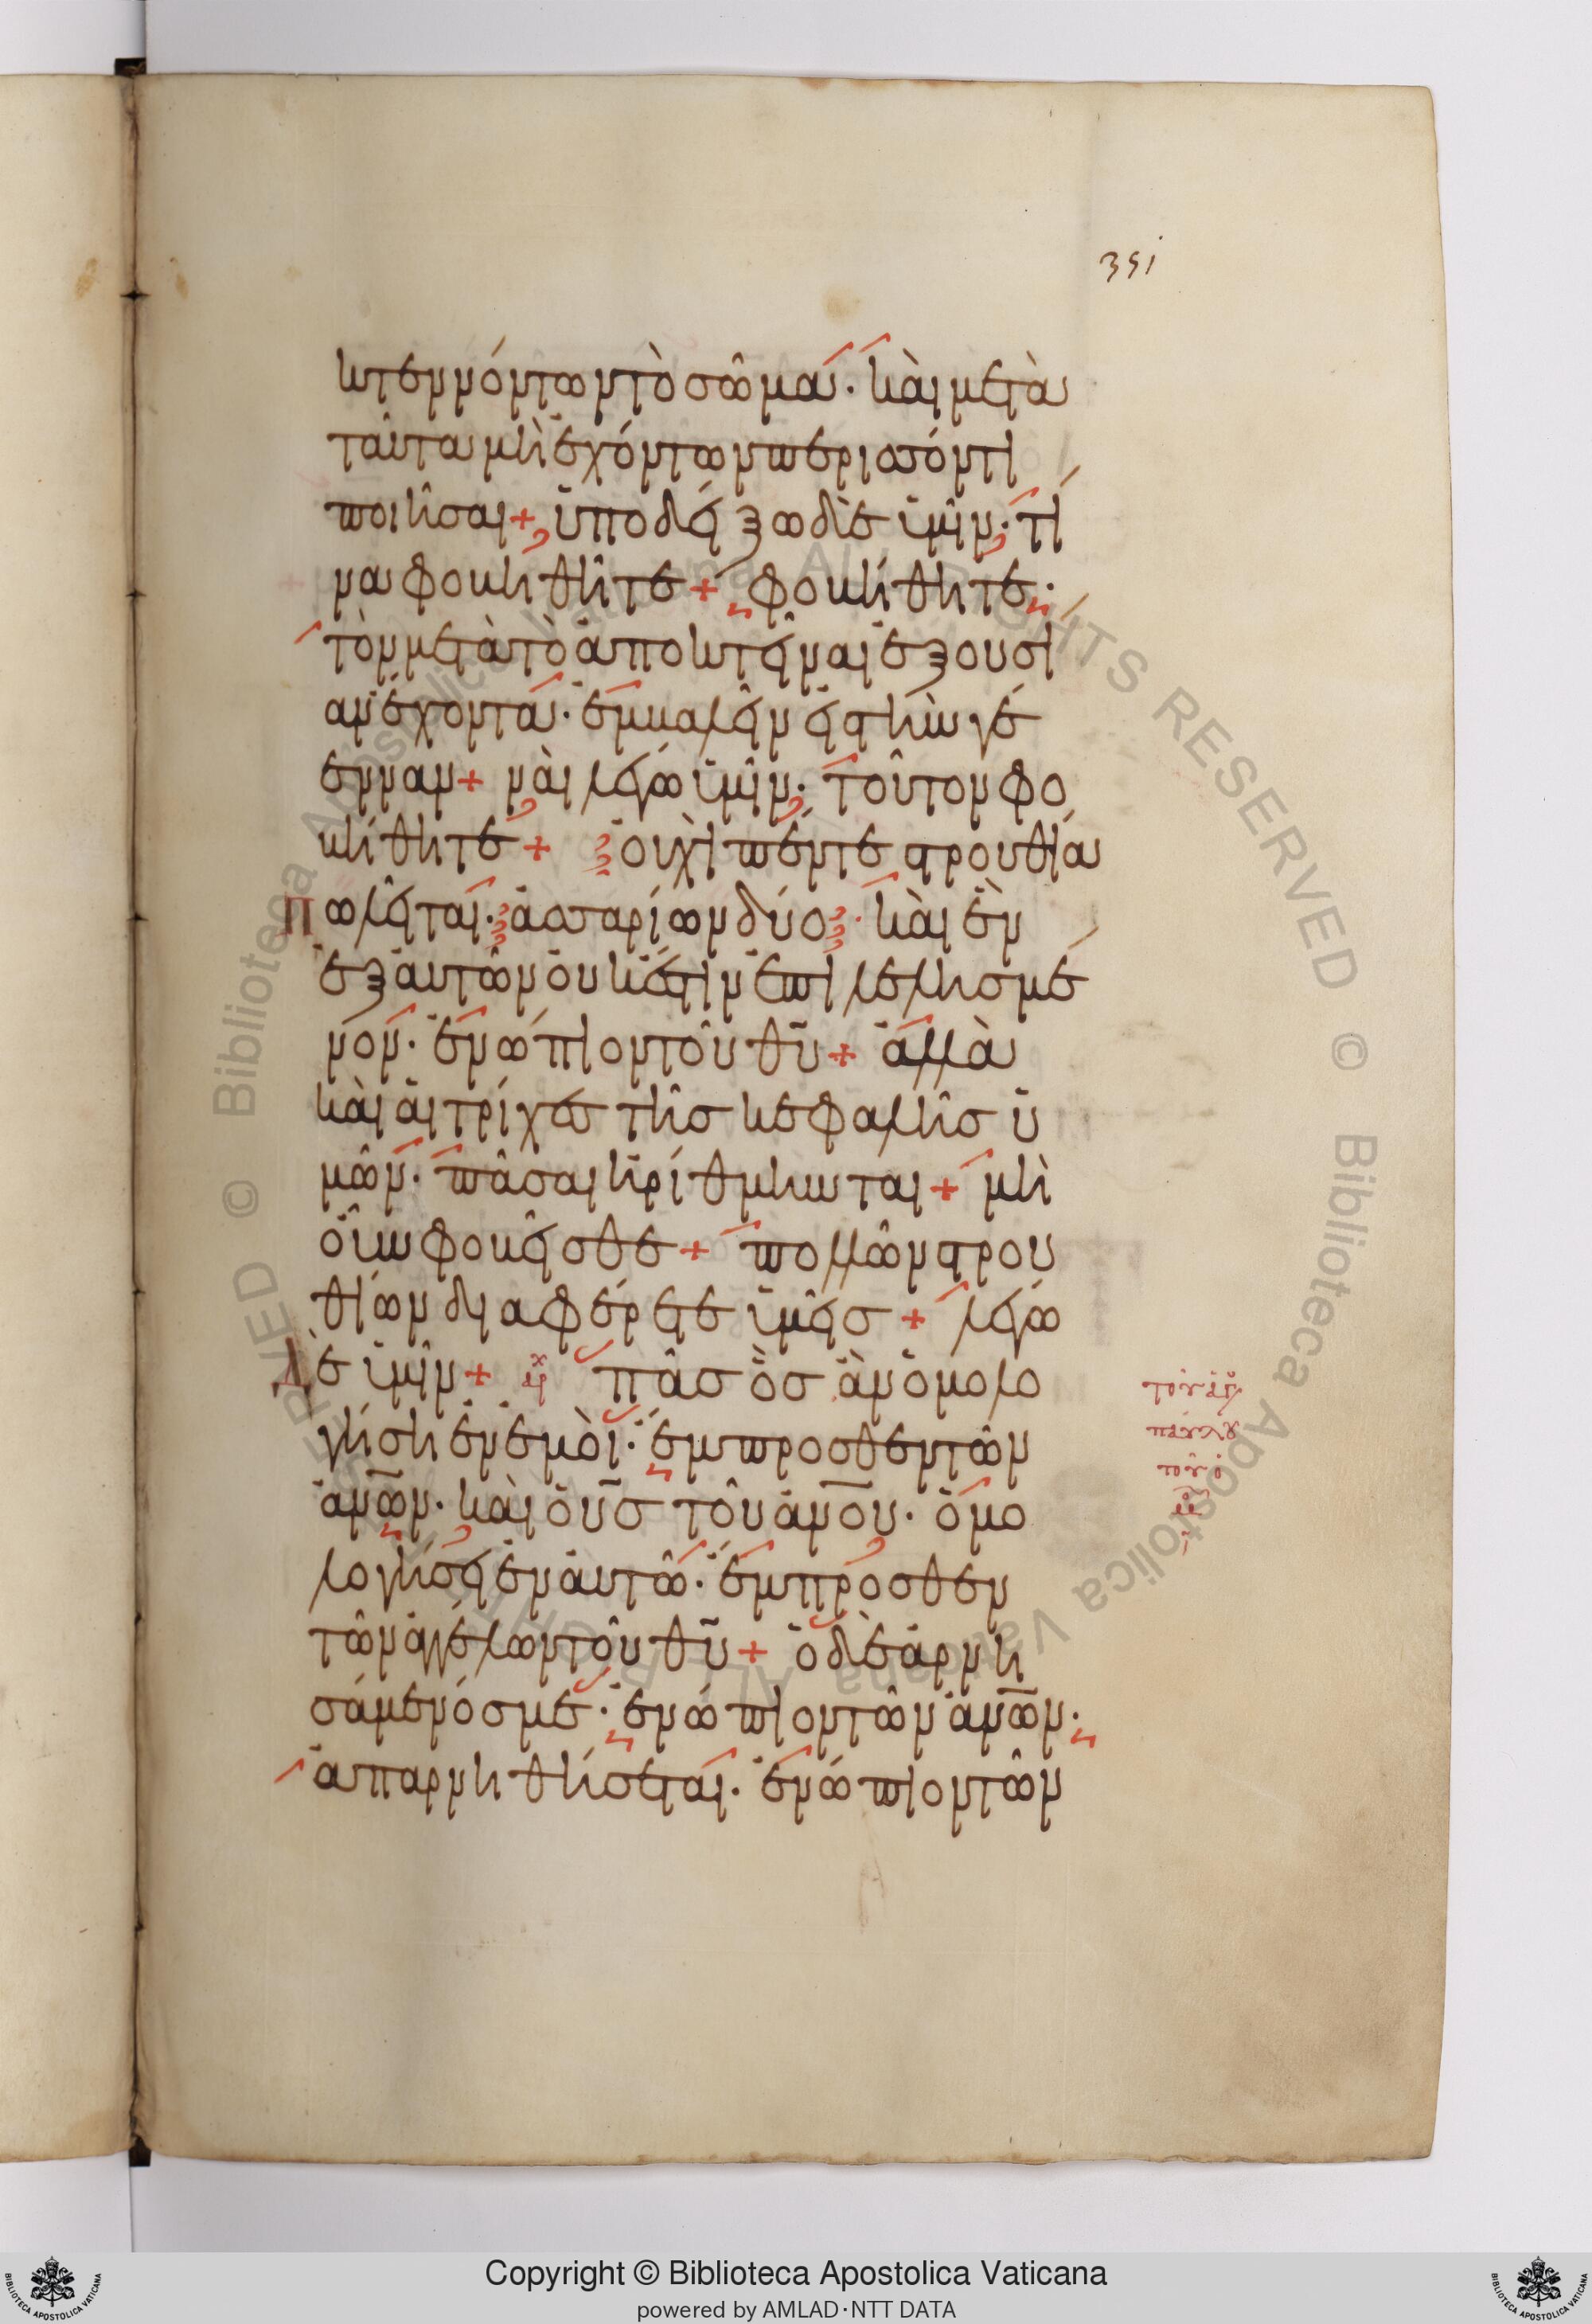 351
κτεννόντων τὸ σῶμα· καὶ μετὰ
ταῦτα μὴ ἐχόντων περισσόν τι
ποιῆσαι + ὑποδείξω δὲ ὑμῖν· τί
να φοβηθῆτε + φοβήθητε·
τὸν μετὰ τὸ ἀποκτεῖναι ἐξουσί
αν ἔχοντα· ἐμβαλεῖν εἰς τὴν γέ
ενναν + ναὶ λέγω ὑμῖν· τοῦτον φο
βήθητε + οὐχὶ πέντε στρουθία
πωλεῖται· ἀσσαρίων δύο· καὶ ἓν
ἐξ αὐτῶν οὐκ ἔστιν ἐπιλελησμέ
νον· ἐνώπιον τοῦ θῦ + ἀλλὰ
καὶ αἱ τρίχες τῆς κεφαλῆς ὑ
μῶν· πᾶσαι ἠρίθμηνται + μὴ
οὖν φοβεῖσθε + πολλῶν στρου
θίων διαφέρετε ὑμεῖς + λέγω
Δὲ ὑμῖν + πᾶς ὃς ἂν ὁμολο
γήσῃ ἐν ἐμοὶ· ἔμπροσθεν τῶν
ἀνων· καὶ ὁ υς τοῦ ἀνου· ὁμο
λογήσει ἐν αὐτῶ· ἔμπροσθεν
τῶν ἀγγέλων τοῦ θῦ + ὁ δὲ ἀρνη
σάμενός με· ἐνώπιον τῶν ἀνων·
ἀπαρνηθήσεται· ἐνώπιον τῶν
Copyright © Biblioteca Apostolica Vaticana
powered by AMLAD·NTT DATA